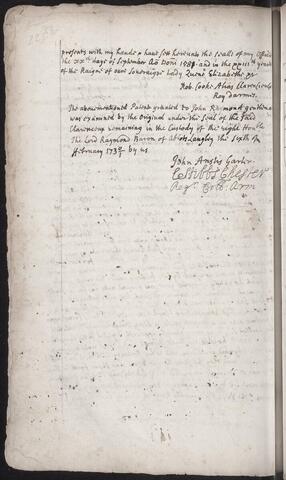 presents with my hande & have sett hereunto the Sealle of my Office
the xxth daye of September Ao Doni and in the yeare
of the Raigne of our Soveraigne Lady Quene Elizabethe &c
Rob. Cooke Alias Clarencieulx
Roy Darmes.
The abovementioned Patent granted to John Raymond gentleman
was examined by the Original under the Seal of the said
Clarenceux remaining in the Custody of the right Honble
The Lord Raymond Baron of Abbots Langley the Sixth of
February by us
John Anstis Garter
E Stibbs Chester
Regr. Coll. Arm